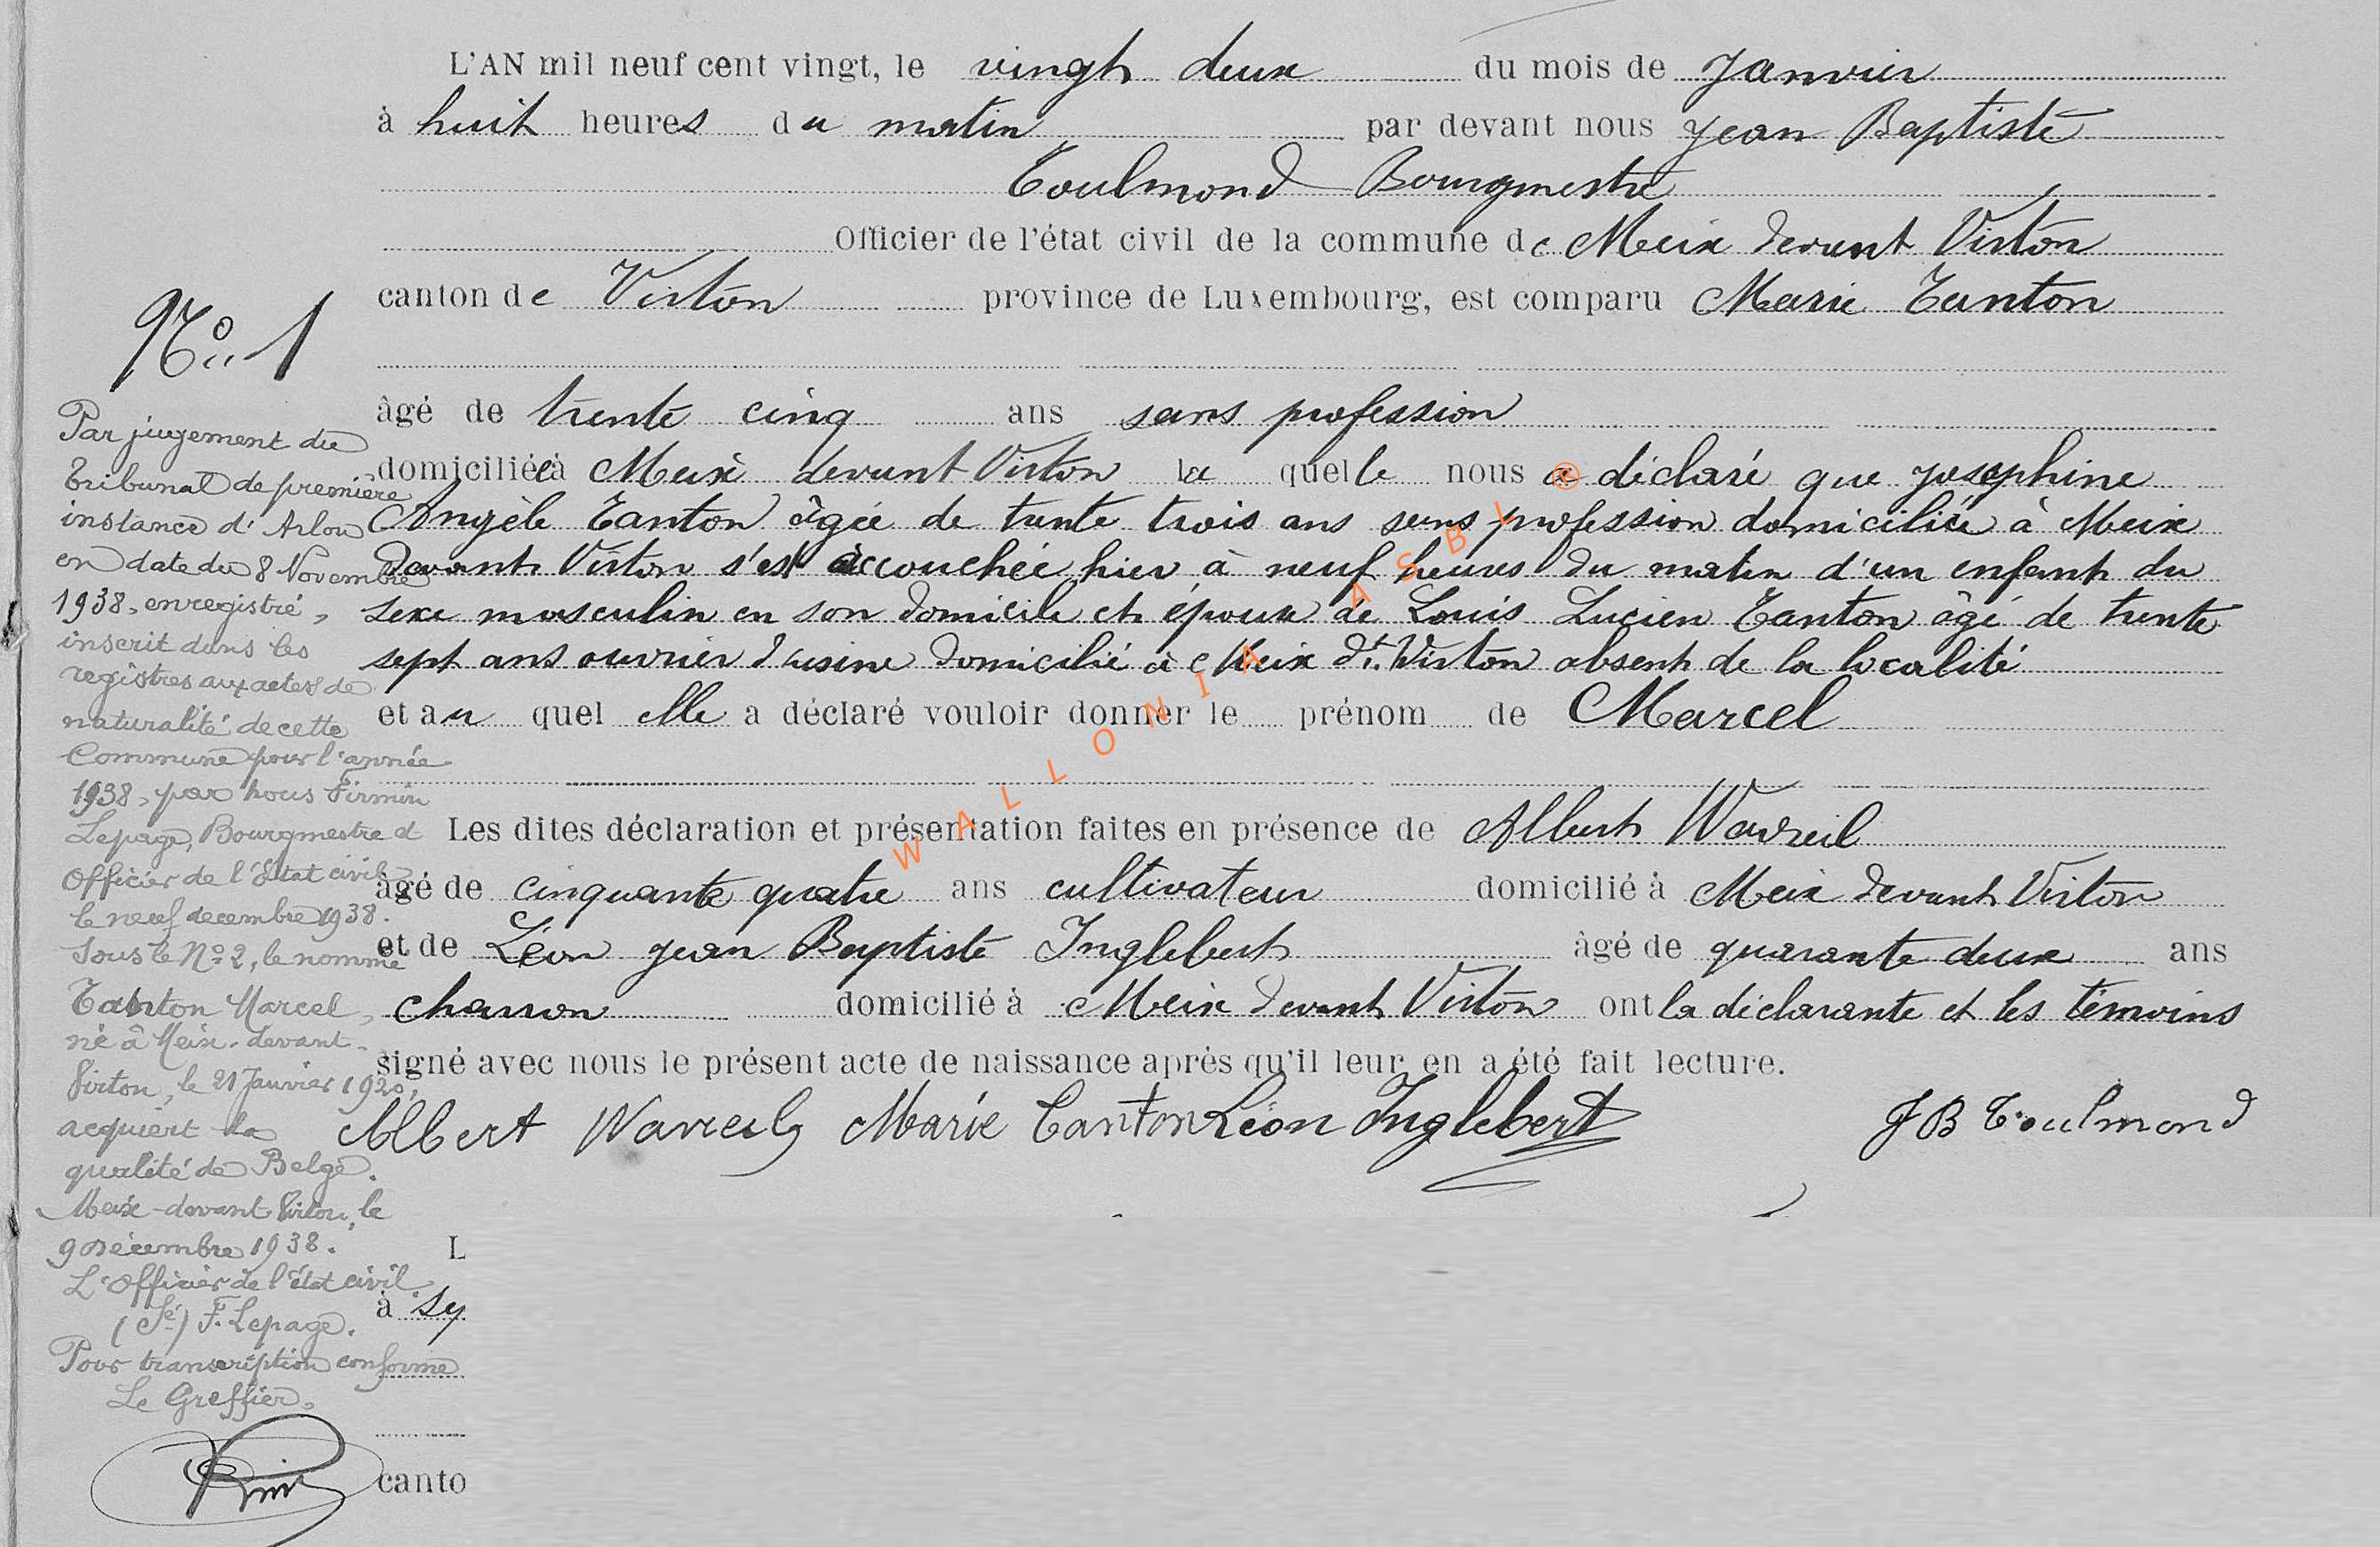 L'AN mil neuf cent vingt, le vingt deux du mois de Janvier
à huit heures du matin par devant nous Jean Baptiste
Toulmond Bourgmestre
Officier de l'état civil de la commune de Meix devant Virton
canton de Virton province de Luxembourg, est comparu Marie Tanton
âgé de trente cinq ans sans profession
domiciliée à Meix devant Virton la quelle nous a déclaré que Josephine
Angèle Tanton âgée de trente trois ans sans profession domiciliée à Meix
devant Virton s'est accouchée hier à neuf heures du matin d'un enfant du
sexe masculin en son domicile et épouse de Louis Lucien Tanton âgé de trente
sept ans ouvrier d'usine domicilié à Meix dt Virton absent de la localité
et au quel elle a déclaré vouloir donner le prénom de Marcel
Les dites déclaration et présentation faites en présence de Albert Wavreil
âgé de cinquante quatre ans cultivateur domicilié à Meix devant Virton
et de Léon Jean Baptiste Inglebert âgé de quarante deux ans
charron domicilié à Meix devant Virton ont la déclarante et les témoins
signé avec nous le présent acte de naissance après qu'il leur en a été fait lecture.
Albert Wavreil Marie Tanton Léon Inglebert JB Toulmond
No 1
Par jugement du
Tribunal de première
instance d'Arlon
en date du 8 Novembre
1938, enregistré,
inscrit dans les
registres aux actes de
naturalité de cette
Commune pour l'année
1938, par nous Firmin
Lepage, Bourgmestre et
Officier de l'Etat civil
le neuf decembre 1938.
Sous le No 2, le nommé
Tanton Marcel,
né à Meix-devant-
Virton, le 21 Janvier 1920,
acquiert la
qualité de Belge.
Meix-devant-Virton, le
9 Décembre 1938.
L'Officier de l'état civil
(Sé) F. Lepage.
Pour transcription conforme
Le Greffier.
L
à sy
canto
WALLONIA ASBL ®